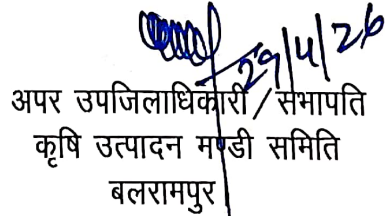 29/4/26
अपर उपजिलाधिकारी / सभापति
कृषि उत्पादन मण्डी समिति
बलरामपुर